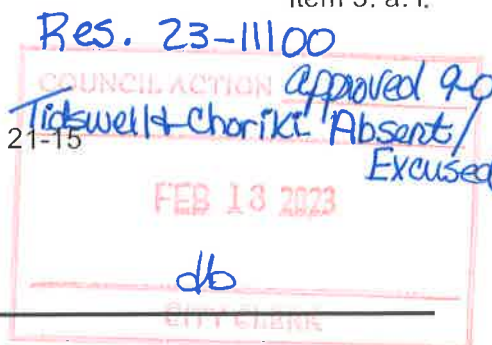 Item 5. a. i.
Res. 23-11100
COUNCIL ACTION approved 9-0
Tidswell + Choriki Absent/
21-15
Excused
FEB 13 2023
db
CITY CLERK